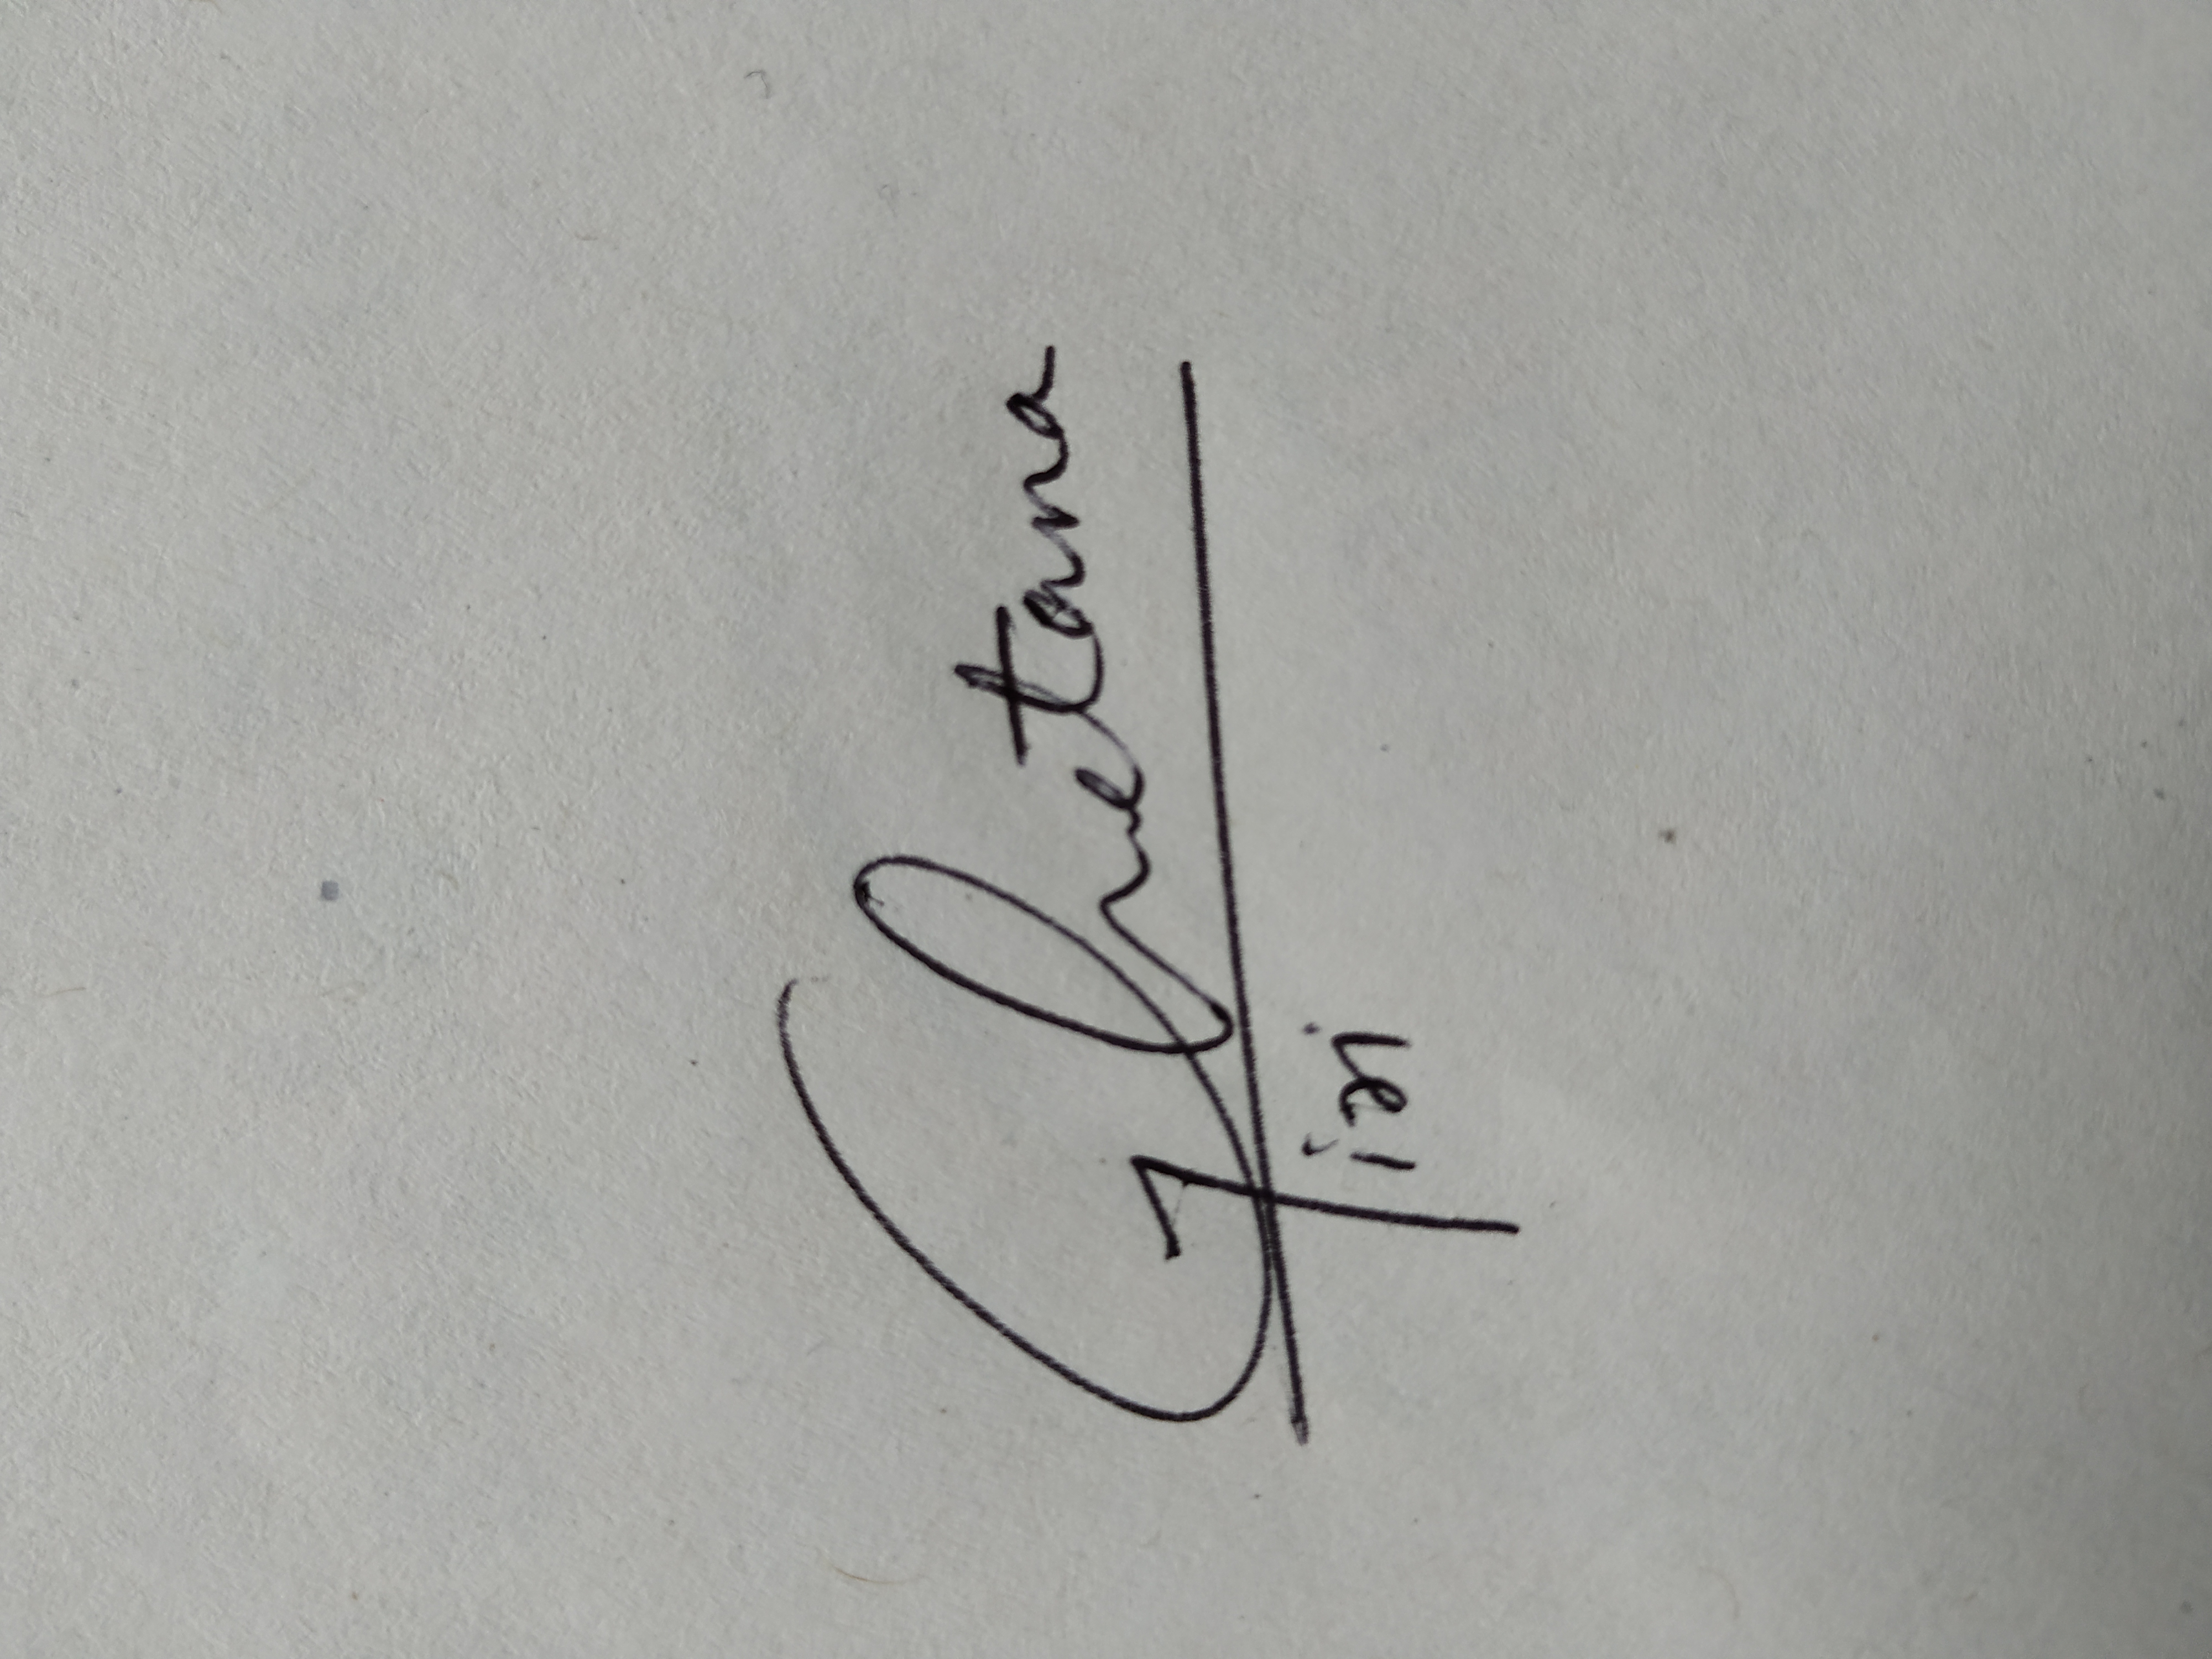 Chetana
Giri